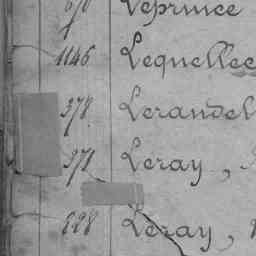 Leprince
1146 Lequellec
378 Lerandel
371 Leray,
228 Leray,